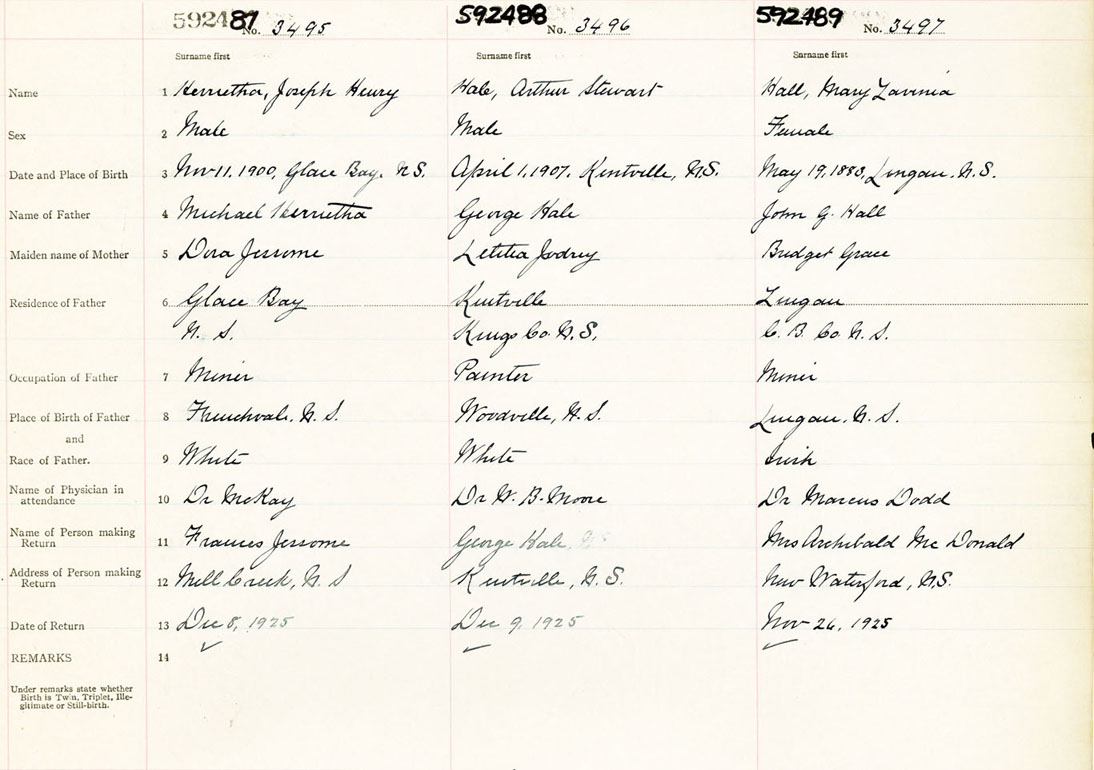 592487 No. 3495 592488 No. 3496 592489 No. 3497
Surname first Surname first Surname first
Name 1 Herrietha, Joseph Henry Hale, Arthur Stewart Hall, Mary Lavinia
Sex 2 Male Male Female
Date and Place of Birth 3 Nov 11, 1900, Glace Bay. N.S. April 1, 1907. Kentville, N.S. May 19, 1883, Lingan. N.S.
Name of Father 4 Michael Herrietha George Hale John G. Hall
Maiden name of Mother 5 Dora Jessome Letitia Jodrey Bridget Grace
Residence of Father 6 Glace Bay Kentville Lingan
N. S. Kings Co. N.S. C. B. Co. N. S.
Occupation of Father 7 Miner Painter Miner
Place of Birth of Father 8 Frenchvale. N. S. Woodville, N. S. Lingan. N. S.
and
Race of Father. 9 White White Irish
Name of Physician in 10 Dr McKay Dr W. B. Moore Dr Marcus Dodd
attendance
Name of Person making 11 Frances Jessome George Hale Mrs Archibald Mc Donald
Return
Address of Person making 12 Mill Creek, N. S Kentville, N. S. New Waterford, N.S.
Return
Date of Return 13 Dec 8, 1925 Dec 9, 1925 Nov 26, 1925
REMARKS 14
Under remarks state whether
Birth is Twin, Triplet, Ille-
gitimate or Still-birth.